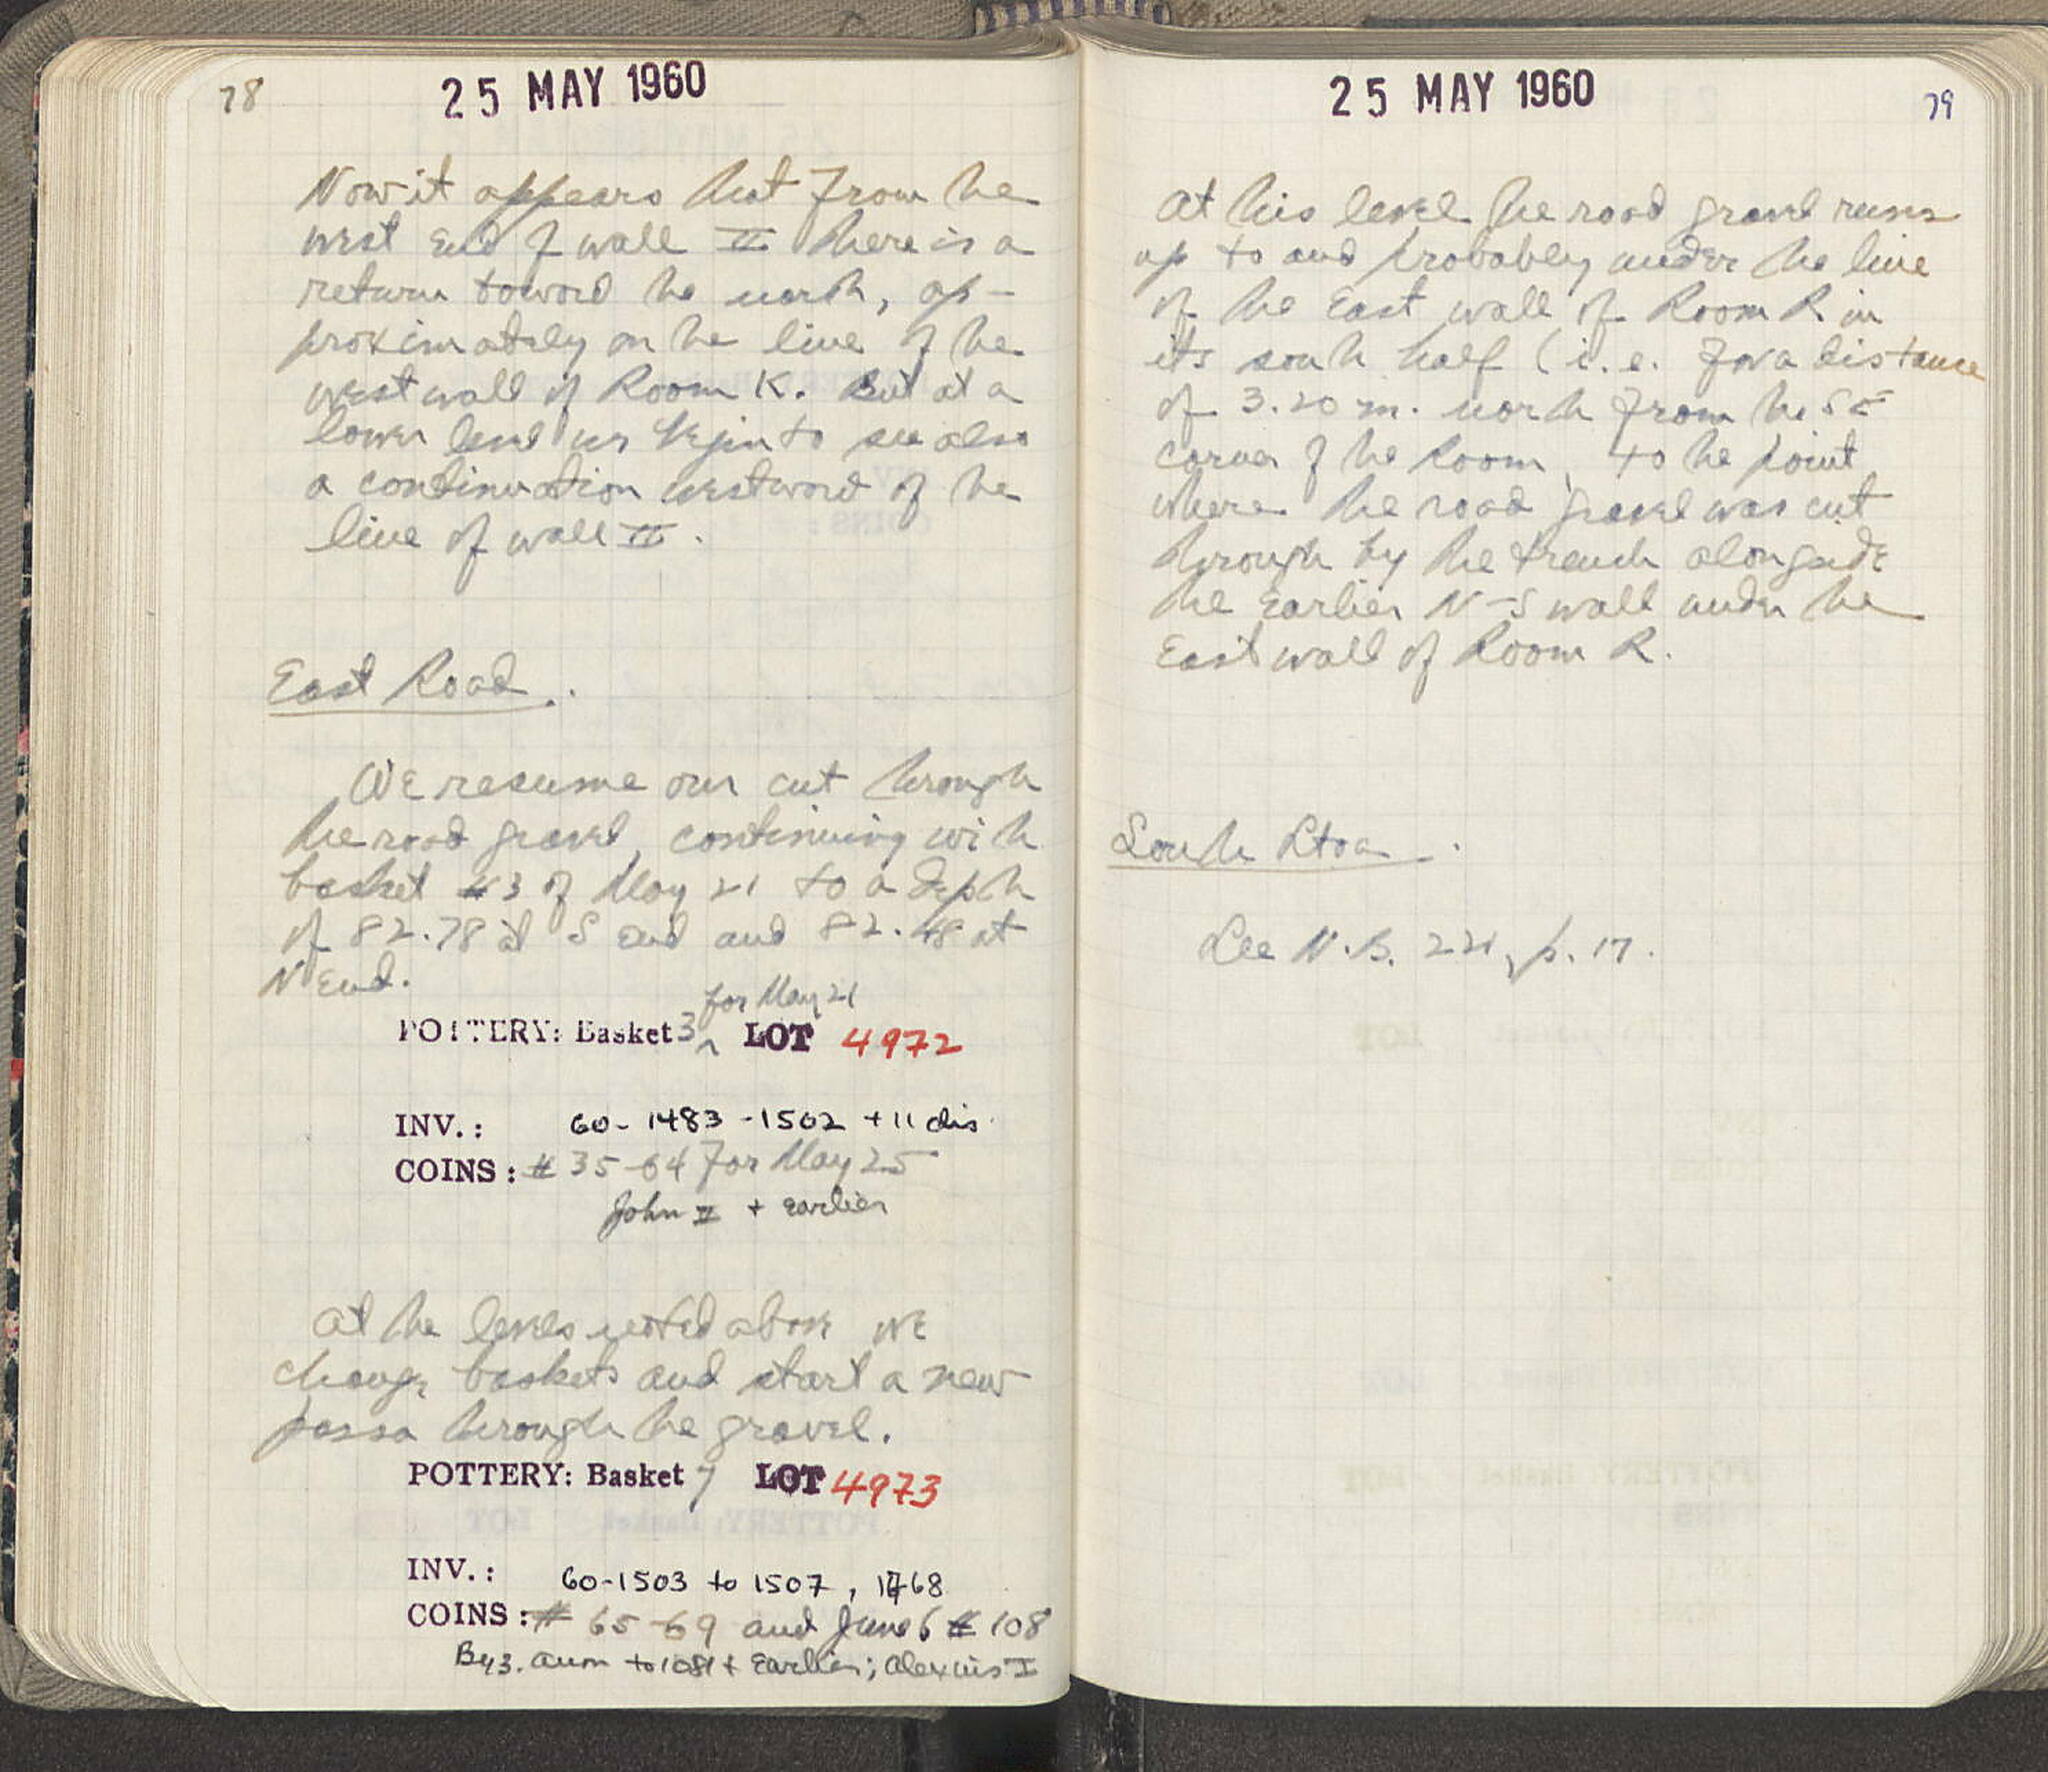 78
25 MAY 1960
Now it appears that from the
west end of wall II there is a
return toward the north, ap-
proximately on the line of the
west wall of Room K. But at a
lower level we begin to see also
a continuation westward of the
line of wall II.
East Road.
We resume our cut through
the road gravel, continuing with
basket #3 of May 21 to a depth
of 82.78 at S end and 82.48 at
N end.
for May 21
POTTERY: Basket 3 ^ LOT 4972
INV.: 60-1483-1502 + 11 dis.
COINS: # 35-64 for May 25
John II + earlier
At the levels noted above we
change baskets and start a new
passa through the gravel.
POTTERY: Basket 7 LOT 4973
INV.: 60-1503 to 1507, 1768
COINS: # 65-69 and June 6 # 108
Byz. anon to 1081 + Earlier; Alexius I
25 MAY 1960
79
At this level the road gravel runs
up to and probably under the line
of the East wall of Room R in
its south half (i.e. for a distance
of 3.20 m. north from the SE
corner of the Room, to the point
where the road gravel was cut
through by the trench alongside
the earlier N-S wall under the
East wall of Room R.
South Stoa.
See N.B. 221, p. 17.